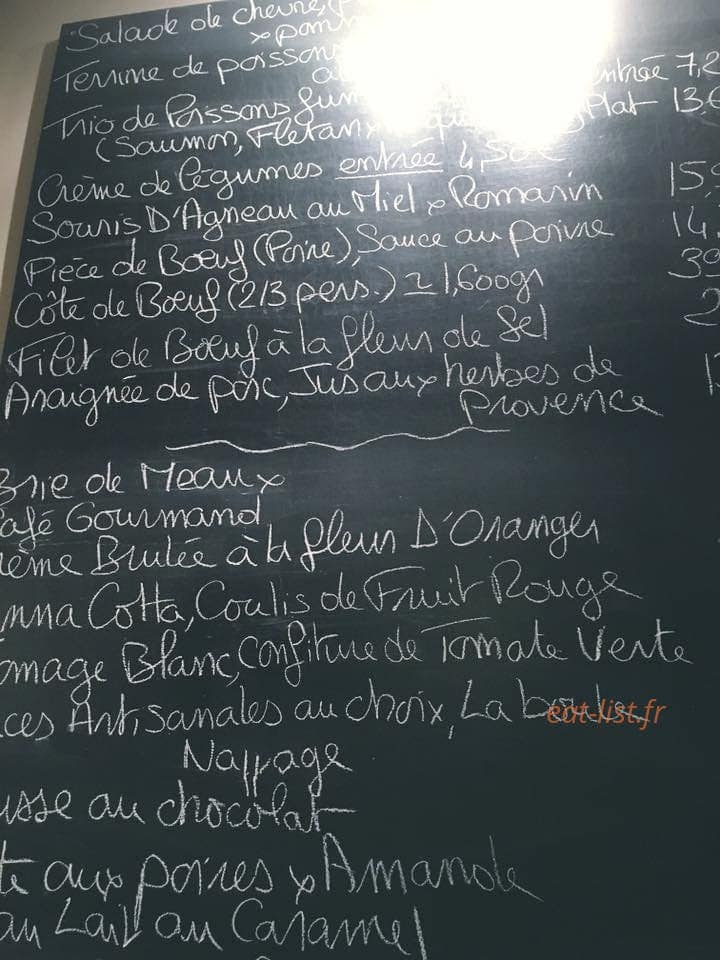 Salade de chèvre,
x pom
Terrine de poissons
entrée 7,2
Trio de Poissons fum Plat 13,
(Saumon, Flétan
Crème de légumes entrée 4,50€
Souris D'Agneau au Miel x Romarin 15,
Pièce de Boeuf (Poire), Sauce au poivre 14,
Côte de Boeuf (2/3 pers.) ≃ 1,600gr 39
Filet de Boeuf à la fleur de Sel 2
Araignée de porc, Jus aux herbes de 1
Provence
Brie de Meaux
afé Gourmand
rème Brulée à la fleur D'Oranger
anna Cotta, Coulis de Fruit Rouge
omage Blanc, Confiture de Tomate Verte
ces Artisanales au choix, La boule
eat-list.fr
Nappage
usse au chocolat
te aux poires x Amande
au Lait au Caramel